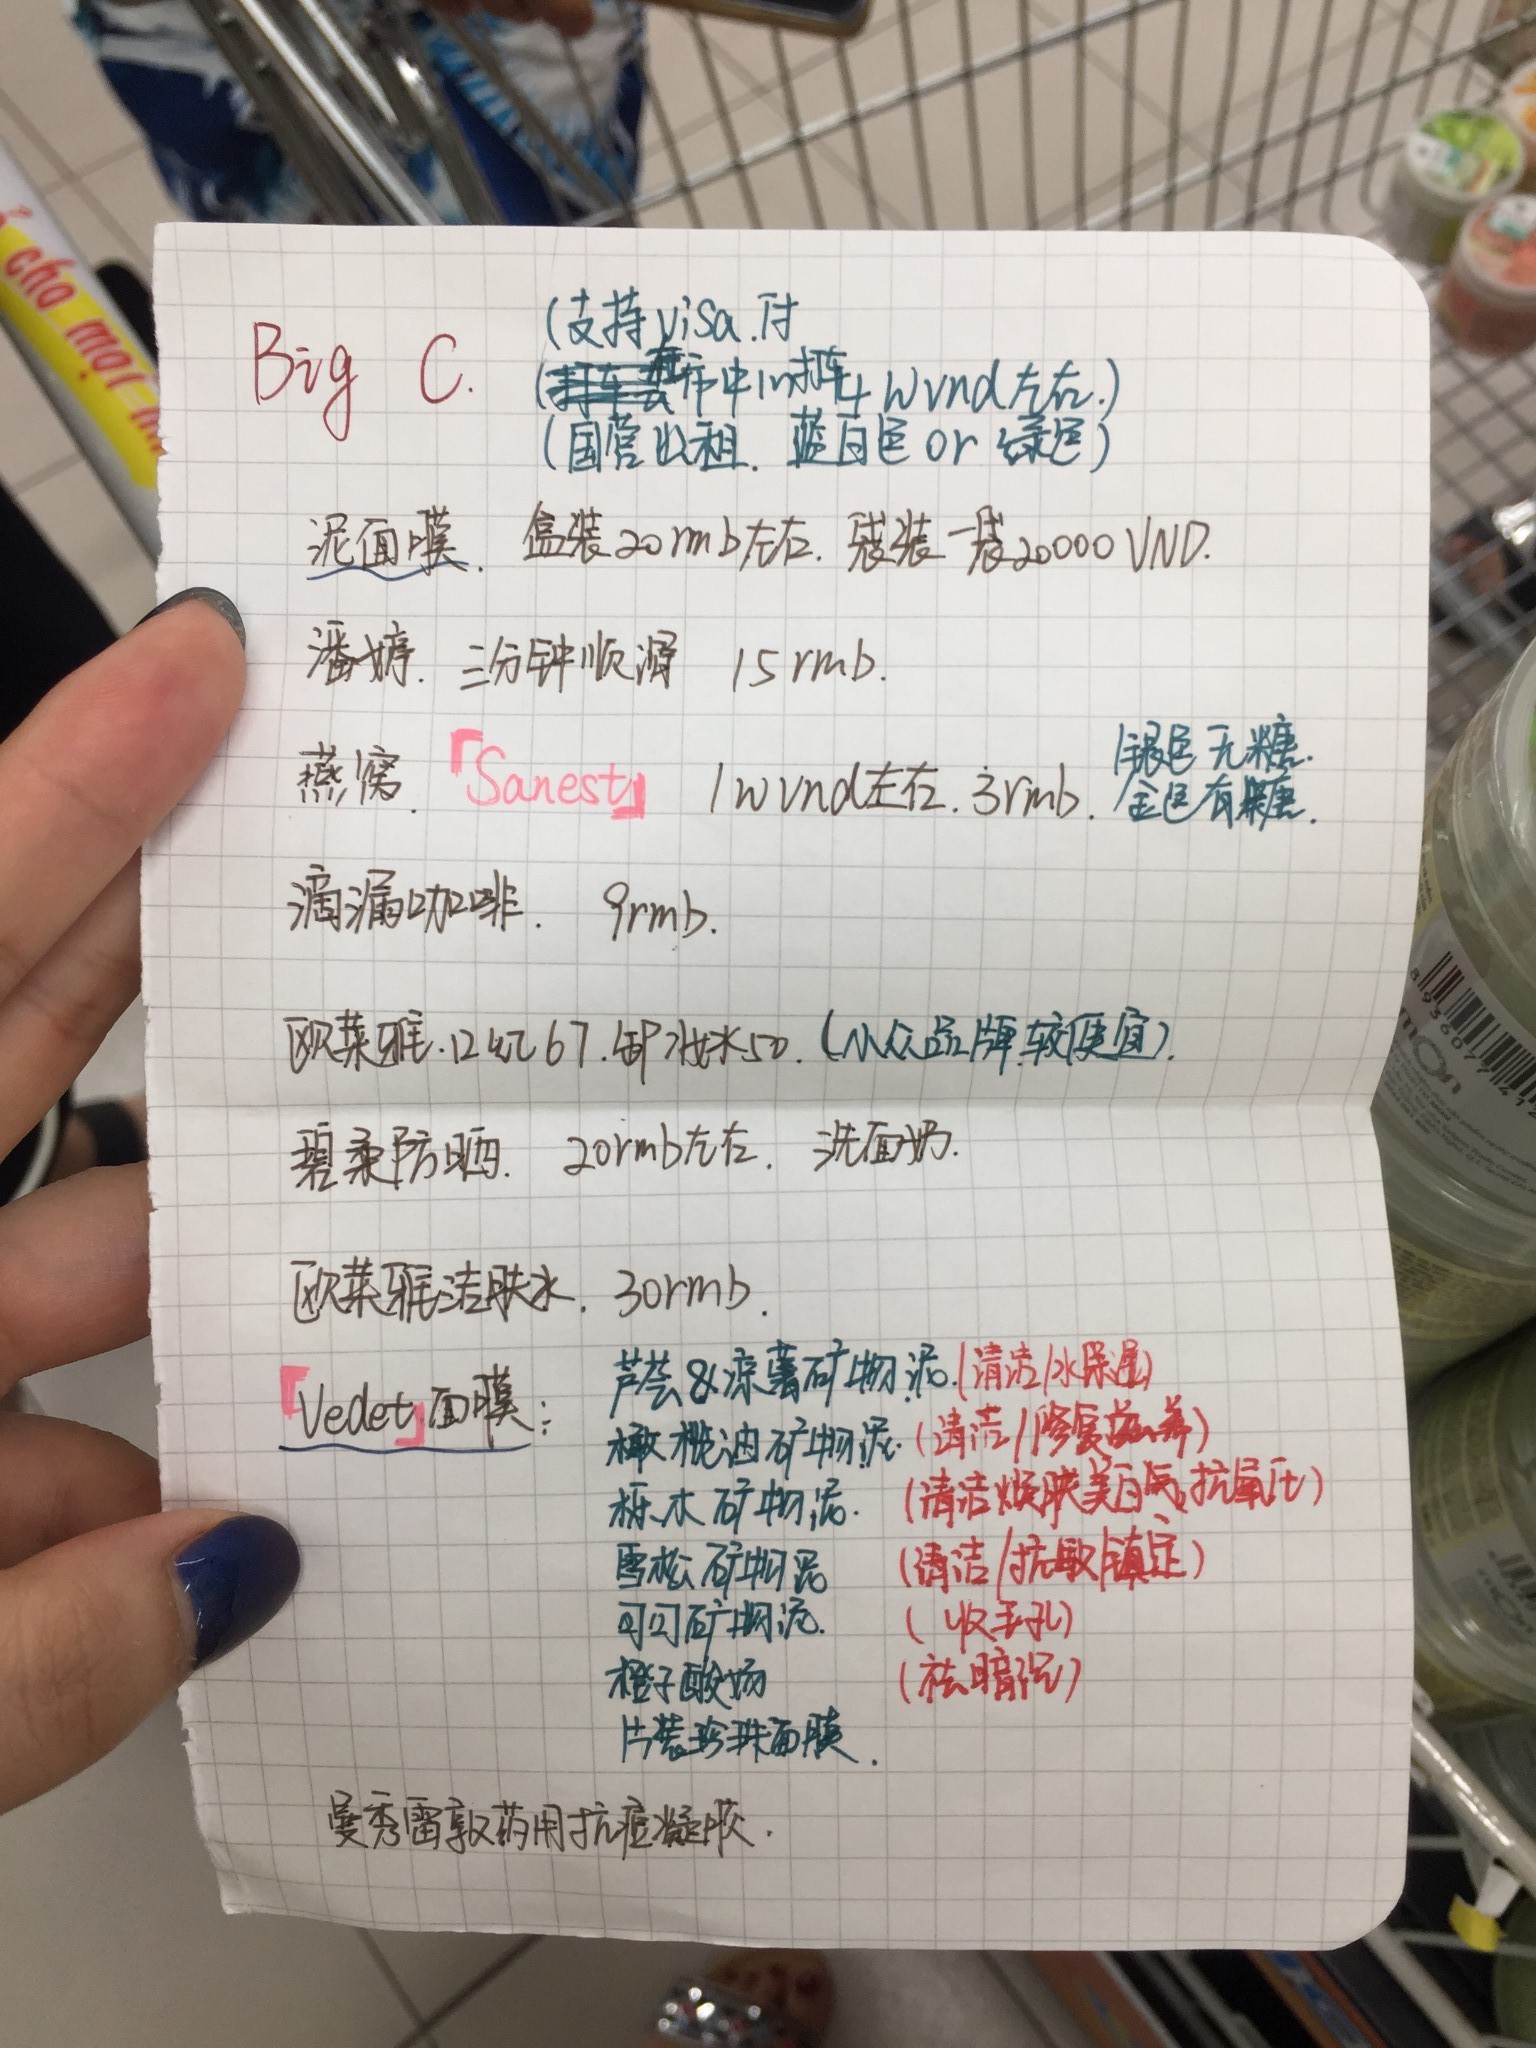 Big C.
(支持visa.付
(在市中心打车4wvnd左右.)
(国营出租. 蓝白色or绿色)
泥面膜. 盒装20rmb左右. 袋装一袋20000VND.
潘婷. 三分钟顺滑 15rmb.
燕窝.「Sanest」 1wvnd左右.3rmb.
(银色无糖.
金色有糖.
滴漏咖啡. 9rmb.
欧莱雅.口红67.卸妆水50.(小众品牌较便宜).
碧柔防晒. 20rmb左右. 洗面奶.
欧莱雅洁肤水. 30rmb.
「Vedet」面膜:
芦荟&凉薯矿物泥.(清洁/水保湿)
橄榄油矿物泥.(清洁/修复滋养)
栎木矿物泥. (清洁焕肤美白 抗氧化)
雪松矿物泥 (清洁/抗敏/镇定)
可可矿物泥. (收毛孔)
橙子酸奶 (祛暗沉)
片装珍珠面膜.
曼秀雷敦药用抗痘凝胶.
cho mọi
JMON